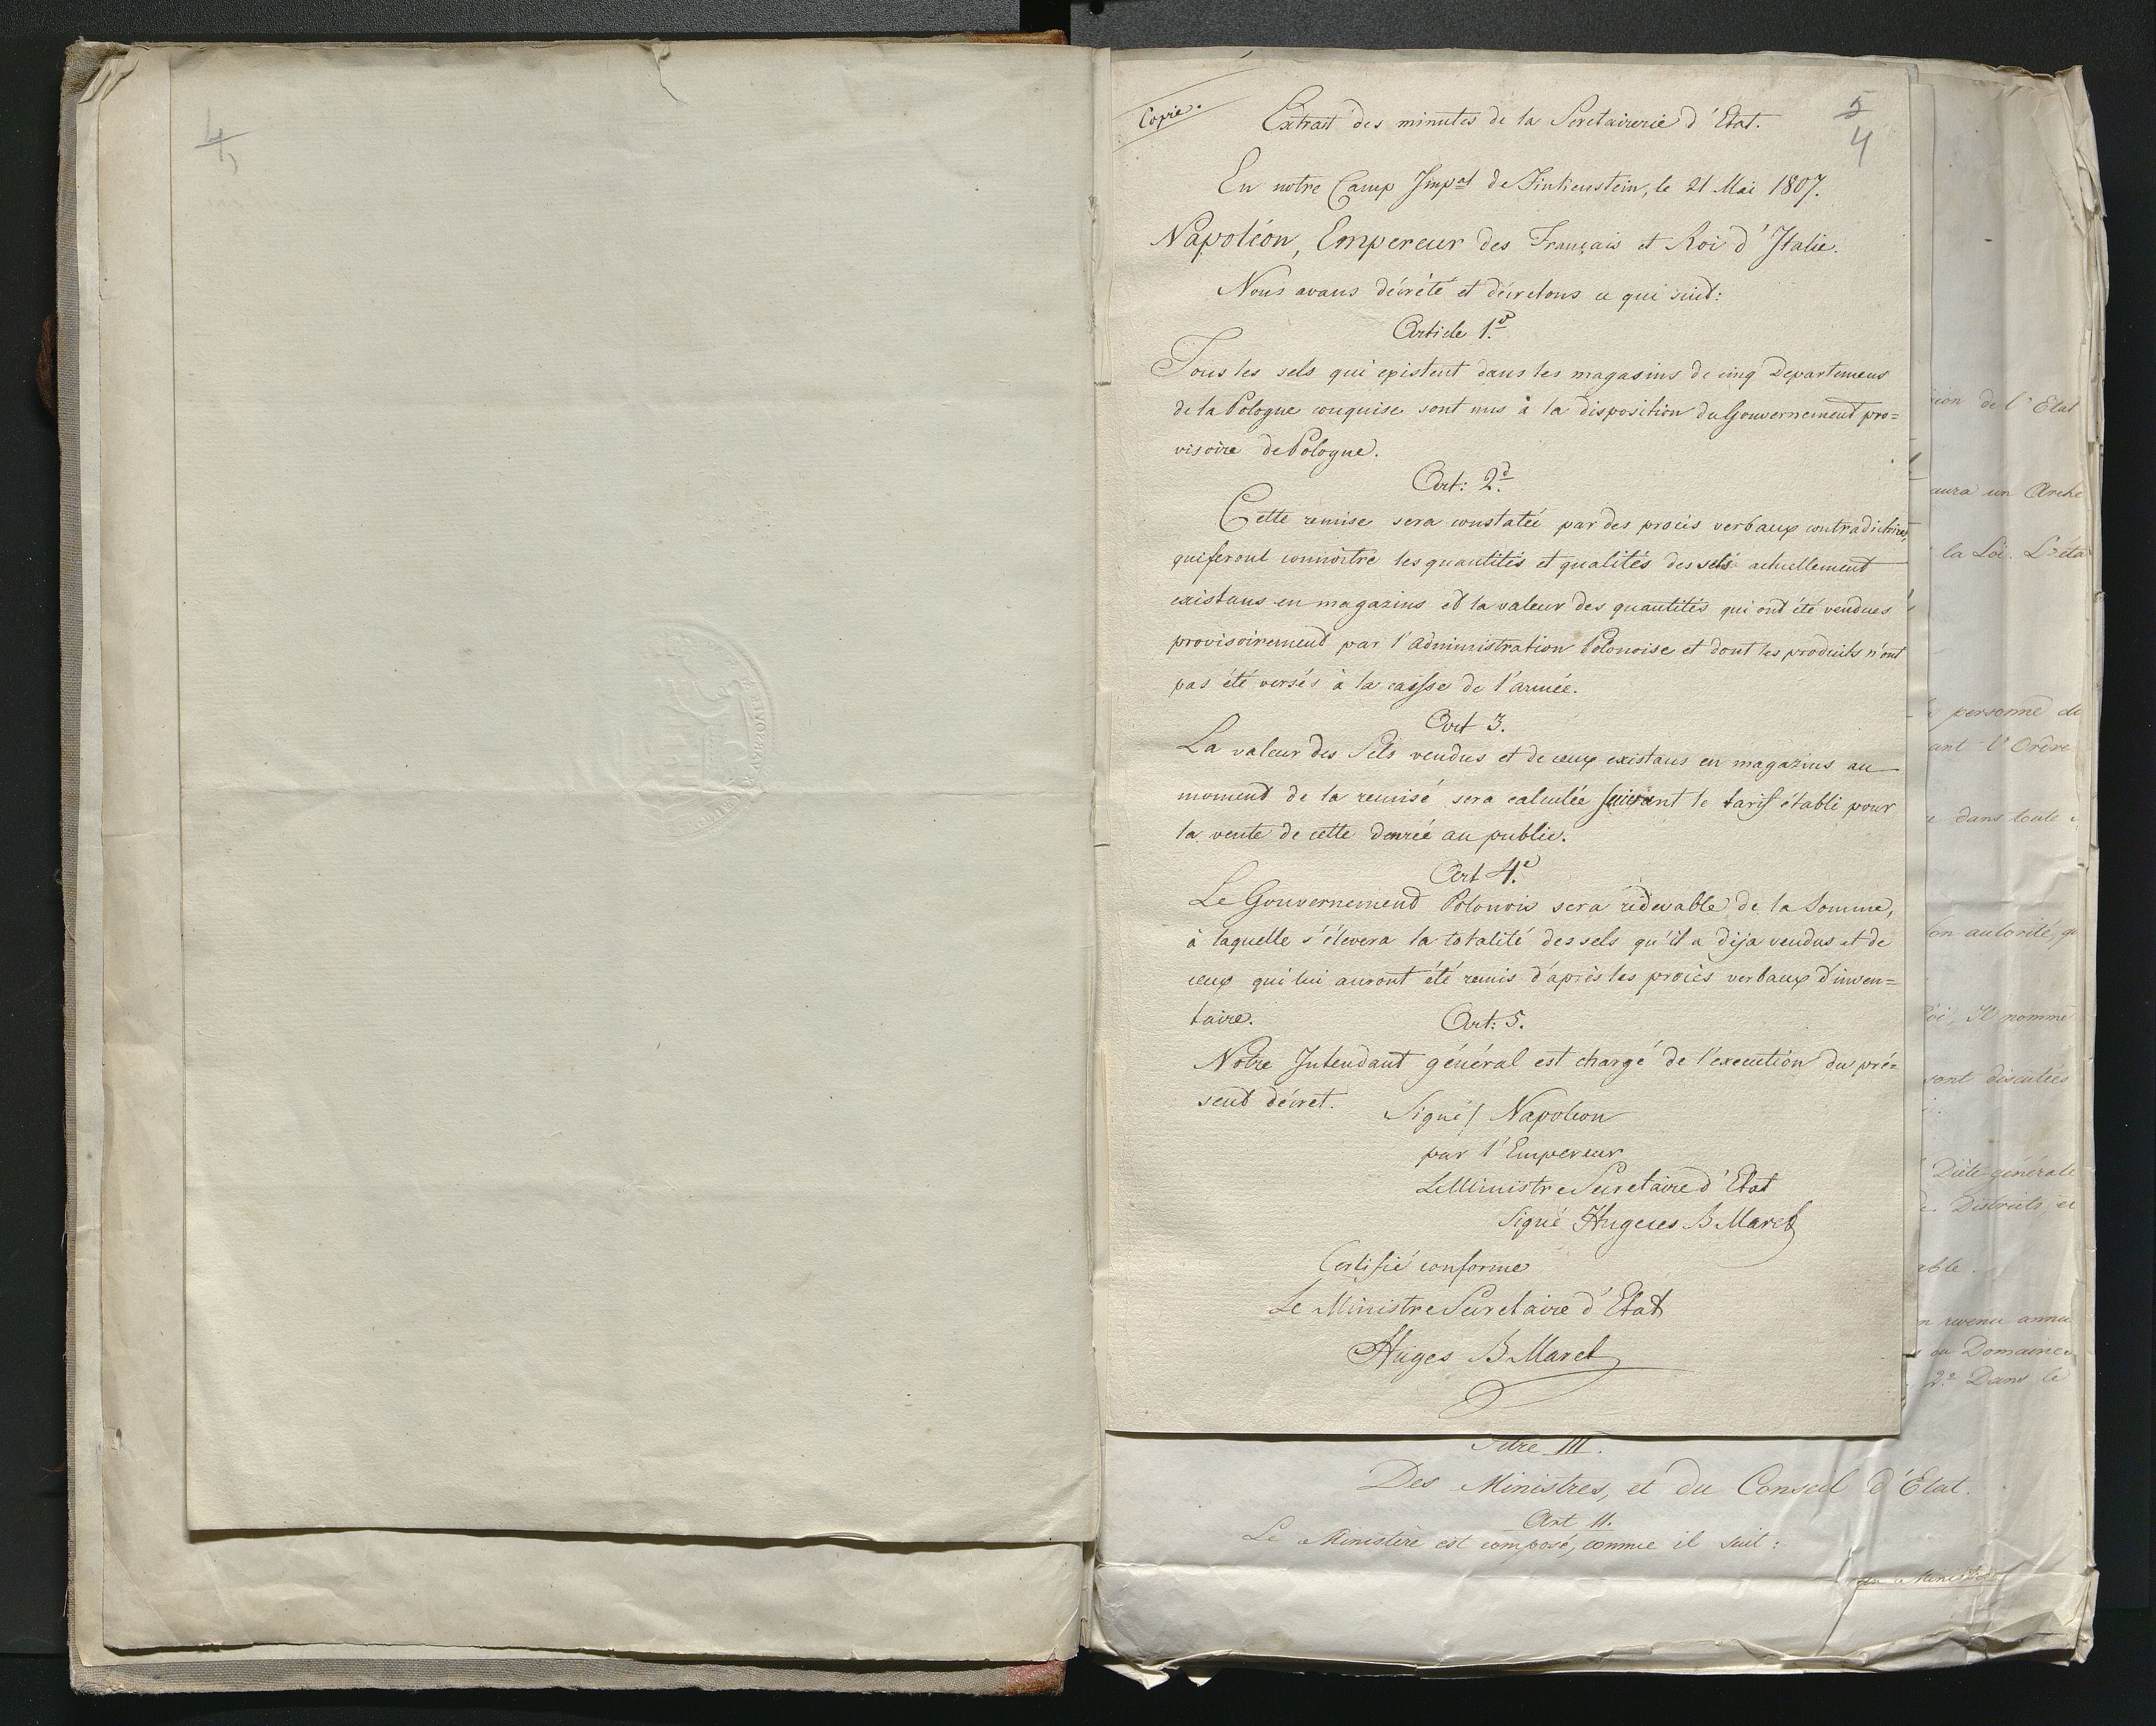 4
5
Copie.
5
4
Extrait des minutes de la Secretairerie d'Etat.
En notre Camp Impal de Finkenstein, le 21 Mai 1807.
Napoléon, Empereur des Français et Roi d'Italie.
Nous avons décrété et décretons ce qui suit:
Article 1r
Tous les sels qui existent dans les magasins de cinq Departemens
de la Pologne conquise sont mis à la disposition du Gouvernement pro=
visoire de Pologne.
Art: 2d
Cette remise sera constatée par des procès verbaux contradictoires,
qui feront connoitre les quantités et qualités des sels actuellement
existans en magazins et la valeur des quantités qui ont été vendues
provisoirement par l'administration Polonoise et dont les produits n'ont
pas été versés à la caisse de l'armée.
Art 3.
La valeur des Sels vendus et de ceux existans en magazins au
moment de la remise sera calculée suivant le tarif établi pour
la vente de cette denrée au public.
Art 4e
Le Gouvernement Polonois sera rédevable de la Somme,
à laquelle s'élevera la totalité des sels qu'il a déja vendus et de
ceux qui lui auront été remis d'après les procès verbaux d'inven=
taire.
Art: 5.
Notre Intendant général est chargé de l'execution du pré=
sent décret.
Signé/ Napoleon
par l'Empereur
Le Ministre Secretaire d'Etat
Signé Hugues B Maret
Certifié conforme
Le Ministre Secretaire d'Etat
Huges B Maret
Titre III.
Des Ministres, et du Conseil d'Etat.
Art 11.
Le Ministère est composé, comme il suit:
de l'Etat
aura un
la Loi. L'éta
personne de
ant l'Ordre
dans toute
autorité, qu
Il nomme
sont discutées
Diète générale
Districts, et
able.
revenu annu
ou Domaine
2.o Dans le